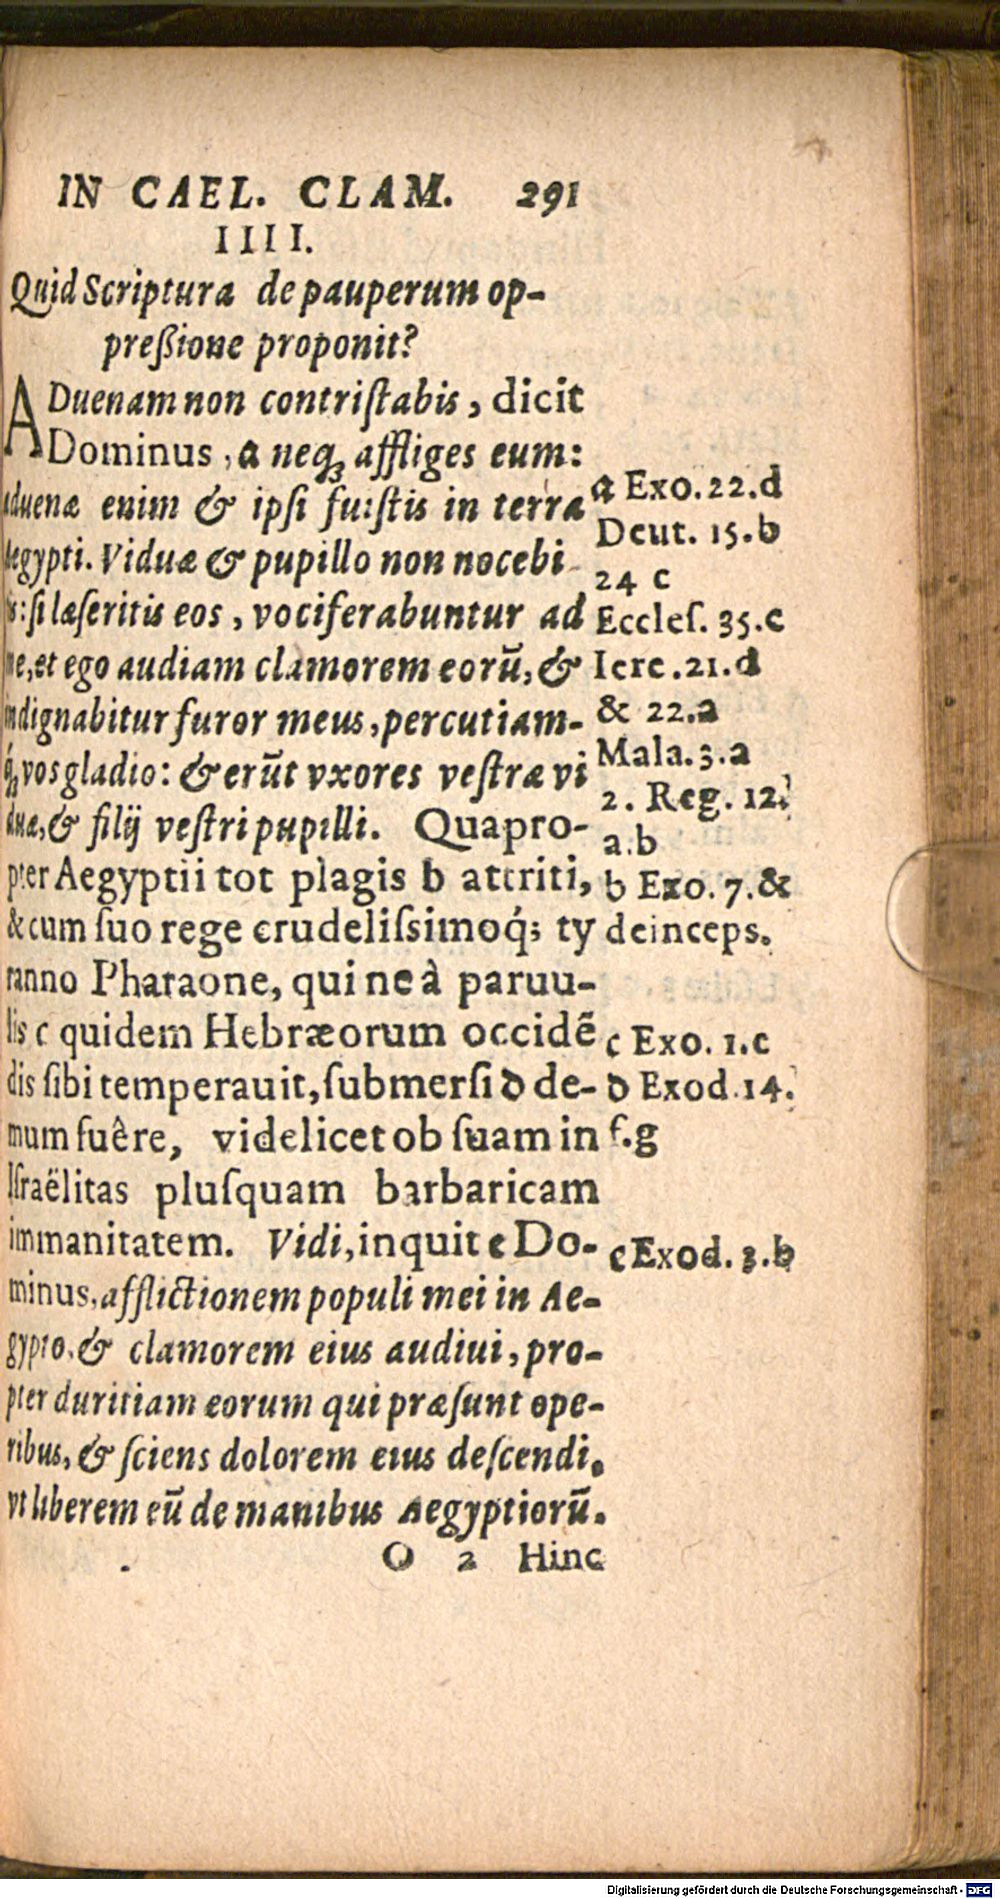 IN CAEL. CLAM. 291
IIII.
Quid Scriptura de pauperum op-
preßione proponit?
ADuenam non contriſtabis, dicit
Dominus, a neq; affliges eum:
aduenæ enim & ipſi fuiſtis in terra
Aegypti. Viduæ & pupillo non nocebi
tis: ſi læſeritis eos, vociferabuntur ad
me, et ego audiam clamorem eorū, &
indignabitur furor meus, percutiam-
q́; vos gladio: & erūt vxores veſtræ vi
duæ, & filij veſtri pupilli. Quapro-
pter Aegyptii tot plagis b attriti,
& cum ſuo rege crudeliſsimoq́; ty
ranno Pharaone, qui ne à paruu-
lis c quidem Hebræorum occidē
dis ſibi temperauit, ſubmerſi d de-
mum fuêre, videlicet ob ſuam in
Iſraëlitas pluſquam barbaricam
immanitatem. Vidi, inquit e Do-
minus, afflictionem populi mei in Ae-
gypto, & clamorem eius audiui, pro-
pter duritiam eorum qui præſunt ope-
ribus, & ſciens dolorem eius deſcendi,
vt liberem eū de manibus Aegyptiorū.
O 2 Hinc
a Exo. 22. d
Deut. 15. b
24 c
Eccleſ. 35. c
Iere. 21. d
& 22. a
Mala. 3. a
2. Reg. 12.
a. b
b Exo. 7. &
deinceps.
c Exo. 1. c
d Exod. 14.
f. g
e Exod. 3. b
Digitalisierung gefördert durch die Deutsche Forschungsgemeinschaft - DFG